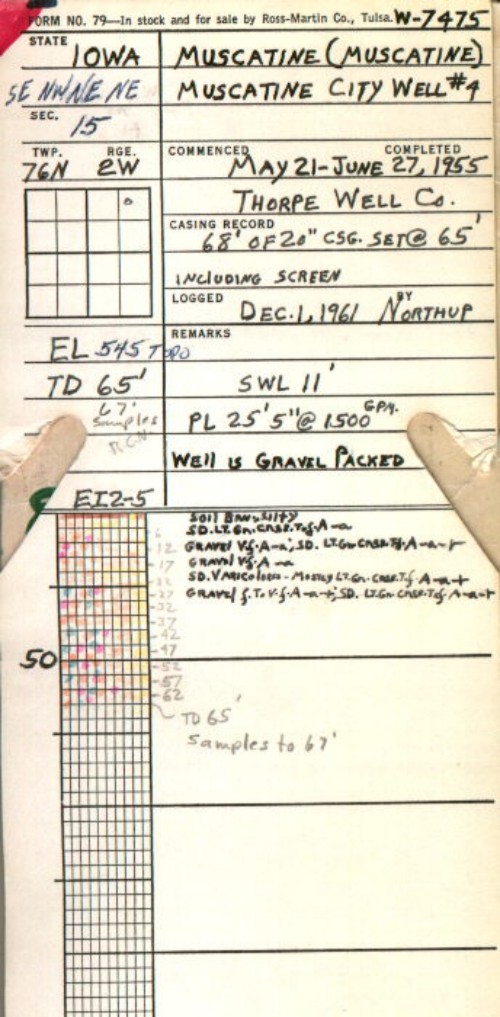 FORM NO. 79—In stock and for sale by Ross-Martin Co., Tulsa. W-7475
STATE IOWA MUSCATINE (MUSCATINE)
SE NW NE NE MUSCATINE CITY WELL #4
SEC. 15
TWP. RGE. COMMENCED COMPLETED
76N 2W MAY 21-JUNE 27, 1955
THORPE WELL CO.
CASING RECORD
68' OF 20" CSG. SET@ 65'
INCLUDING SCREEN
LOGGED DEC. 1, 1961 BY NORTHUP
EL 545 TOPO REMARKS
TD 65' SWL 11'
67' PL 25'5"@ 1500 GPM.
Samples
R.C.N.
WELL IS GRAVEL PACKED
EI2-5
SOIL BRN. SILTY
6 SD. LT. GN. CRSR. T.f. A-a
12 GRAVEL V.f. A-a; SD. LT. Gn. CRSR. T.f. A-a-r
17 GRAVEL V.f. A-a
22 SD. VARICOLORED - MOSTLY LT. Gn. CRSR. T.f. A-a-r
27 GRAVEL f. T. V.f. A-a-r; SD. LT. Gn. CRSR. T.f. A-a-r
32
37
42
50 47
52
57
62
TD 65'
Samples to 67'